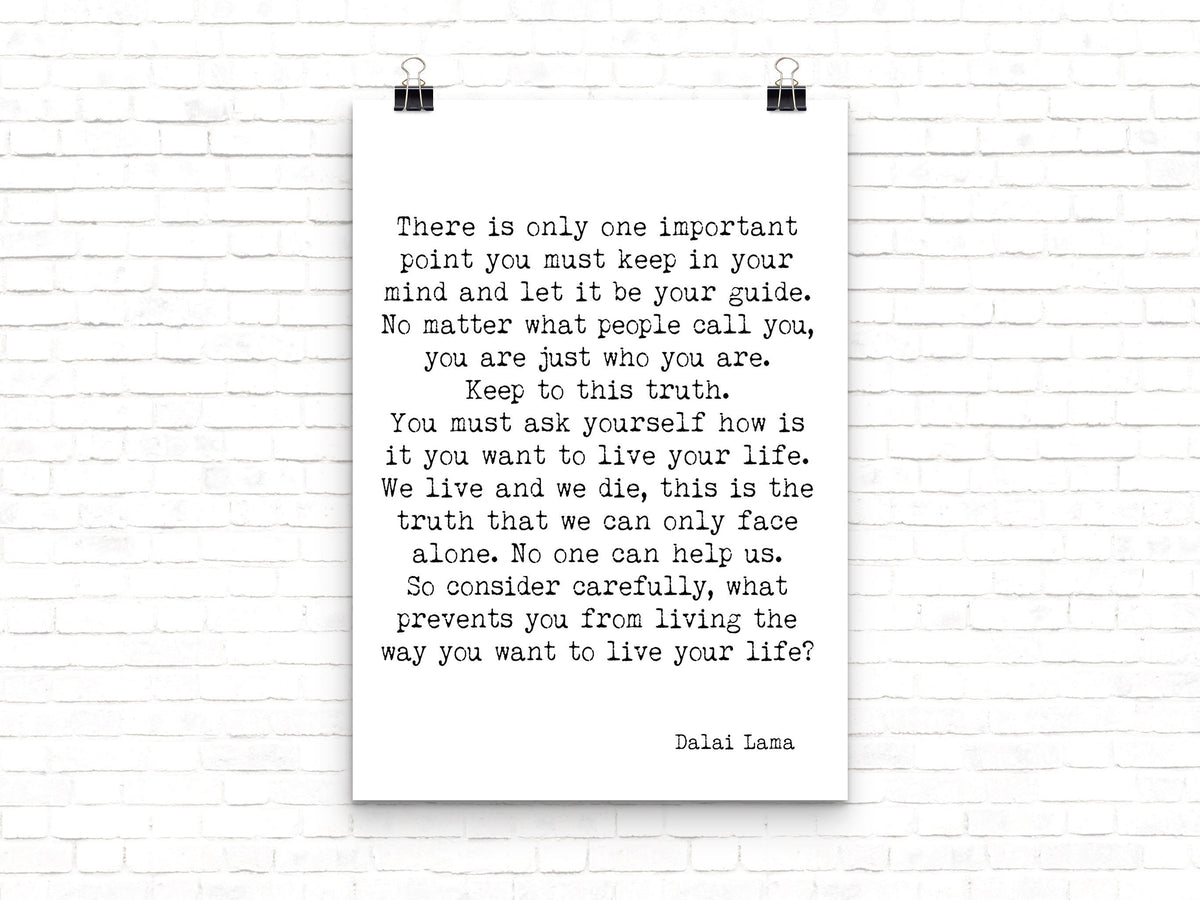 There is only one important
point you must keep in your
mind and let it be your guide.
No matter what people call you,
you are just who you are.
Keep to this truth.
You must ask yourself how is
it you want to live your life.
We live and we die, this is the
truth that we can only face
alone. No one can help us.
So consider carefully, what
prevents you from living the
way you want to live your life?
Dalai Lama